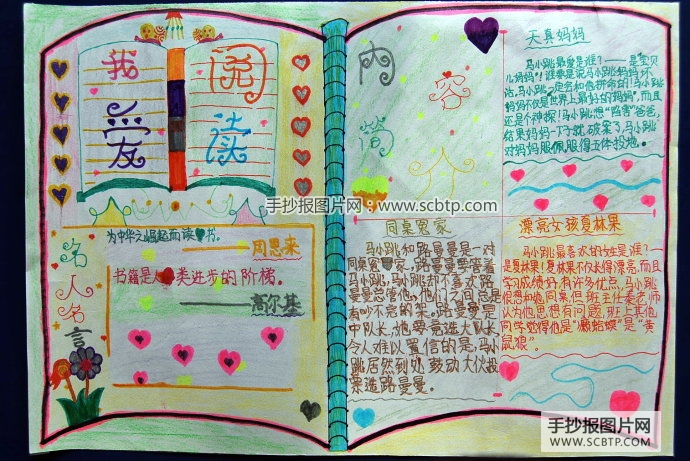 我爱
阅读
为中华之崛起而读书。
——周恩来
书籍是人类进步的阶梯。
——高尔基
名人名言
内容简介
天真妈妈
马小跳最爱是谁?——是宝贝
儿妈妈!谁要是说马小跳妈妈坏
话,马小跳一定会和他拼命的!马小跳
妈妈不仅是世界上最好的妈妈,而且
还是个神探!马小跳想“陷害”爸爸,
结果妈妈一下子就破案了,马小跳
对妈妈服佩服得五体投地。
同桌冤家
马小跳和路曼曼是一对
同桌冤家,路曼曼要管着
马小跳,马小跳却不喜欢路
曼曼总管他,他们之间总是
有吵不完的架。路曼曼是
中队长,她要竞选大队长
令人难以置信的是,马小
跳居然到处鼓动大伙投
票选路曼曼。
漂亮女孩夏林果
马小跳最喜欢的女生是谁?——
是夏林果!夏林果不仅长得漂亮,而且
学习成绩好,有许多优点,马小跳
很想和她同桌,但班主任秦老师
认为他思想有问题,班上其他
同学觉得他是“癞蛤蟆”是“黄
鼠狼”。
手抄报图片网:www.scbtp.com
手抄报图片网
WWW.SCBTP.COM